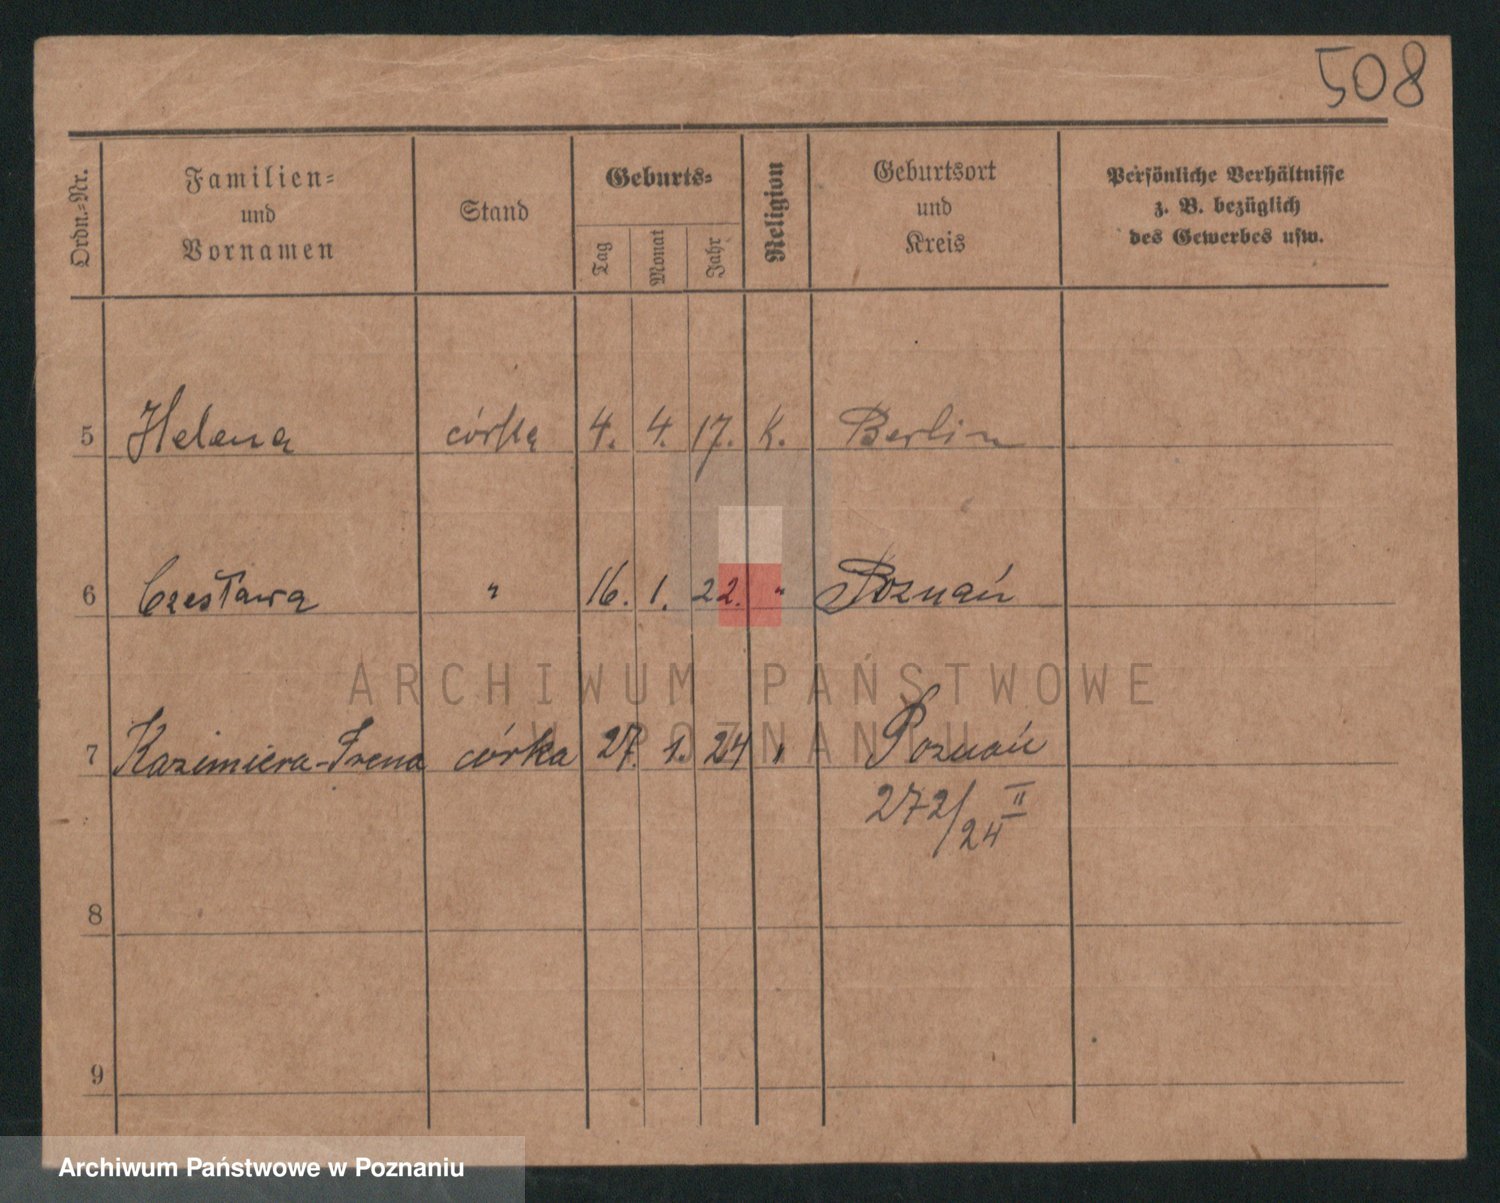 508
Ordn.-Nr.
Familien-
und
Vornamen
Stand
Geburts-
Tag
Monat
Jahr
Religion
Geburtsort
und
Kreis
Persönliche Verhältnisse
z. B. bezüglich
des Gewerbes usw.
5 Helena córka 4. 4. 17. k. Berlin
6 Czesława " 16. 1. 22. " Poznań
ARCHIWUM PAŃSTWOWE
W POZNANIU
7 Kazimiera-Irena córka 27. 1. 24 " Poznań
272/24 II
8
9
Archiwum Państwowe w Poznaniu